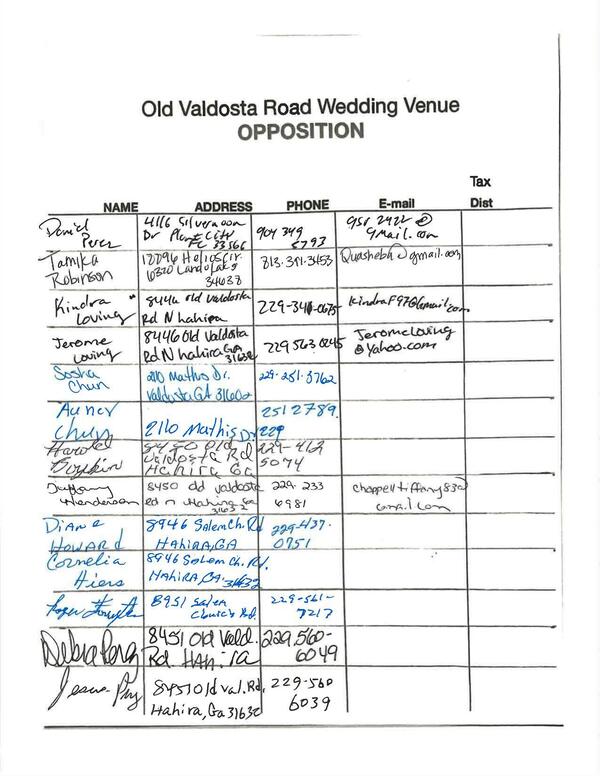 Old Valdosta Road Wedding Venue
OPPOSITION
Tax
NAME ADDRESS PHONE E-mail Dist
Daniel 4116 Silvermoon 904 349 958 2422 @
Perez Dr Plant City 5793 gmail.com
FL 33566
Tamika Helios cir. 813.391.3453 Quashebh@gmail.com
Robinson Land o Lakes
34638
Kindra 8446 old Valdosta 229-340-0675 KindraF97@gmail.com
Loving Rd N hahira
Jerome 8446 Old Valdosta 229 563 0245 Jeromeloving
Loving Rd N hahira GA @yahoo.com
31632
Sosha 2110 Mathis Dr. 229-251-3762
Chun Valdosta GA 31602
Auner 2512789
Chun 2110 Mathis Dr 229
Harold 8450 Old 229-412
Boykin Valdosta Rd 5074
Hahira Ga
Tiffany 8450 old valdosta 229-233 chappelltiffany83@
Henderson rd n Hahira Ga 6981 gmail.com
31632
Diane 8946 Salem Ch. Rd 229-437-
Howard Hahira, GA 0751
Cornelia 8946 Salem Ch. Rd.
Hiers Hahira, GA. 31632
Roger 8951 Salem 229-561-
Church Rd. 7217
Debra Perry 8451 Old Vald. 229.560-
Rd. Hahira 6049
8451 Old Val. Rd, 229-560
Hahira, Ga 31632 6039